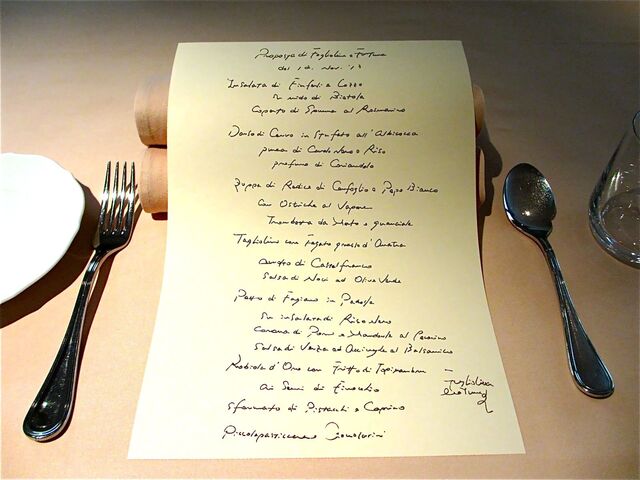 Proposta di Fogliolina e Fortuna
del 12. Nov. '13
Insalata di Finferli e Cozze
su nido di Bietola
Coperto di Spuma al Rosmarino
Dorso di Cervo in Stufato all'Albicocca
purea di Cardo Nero e Riso
profumo di Coriandolo
Zuppa di Radice di Cerfoglio e Pepe Bianco
con Ostriche al Vapore
e guanciale
Tagliolini con Fegato grasso d'Anatra
di Castelfranco
Salsa di Noci ed Olive Verdi
Petto di Fagiano in Padella
su insalata di Riso Nero
Crema di Porri e Mandorle al Pecorino
Salsa di Verza ed Acciughe al Balsamico
Robiola d'Oro con Fritto di Topinambur
ai Semi di Finocchio
Sformato di Pistacchi e Caprino
Piccola pasticceria e Cioccolatini